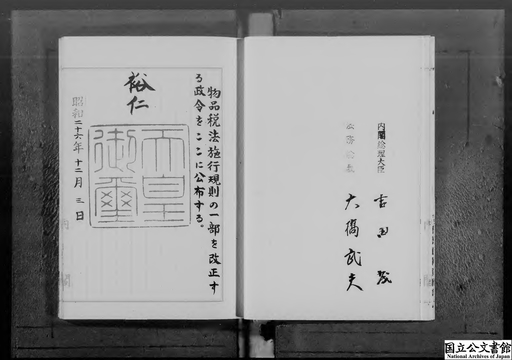 物品税法施行規則の一部を改正す
る政令をここに公布する。
裕仁
天皇
御璽
昭和二十六年十二月三日
内閣総理大臣 吉田茂
法務総裁 大橋武夫
国立公文書館
National Archives of Japan